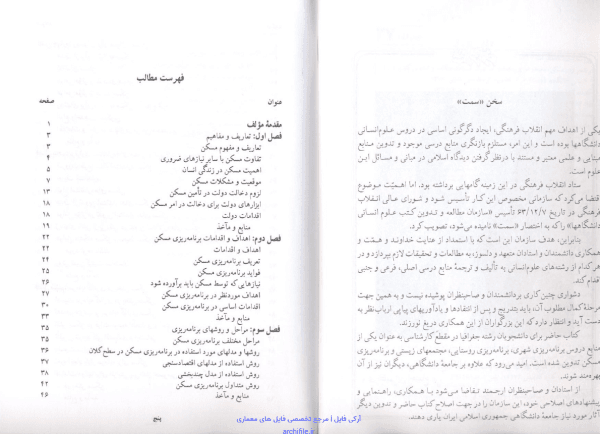 سخن «سمت»
یکی از اهداف مهم انقلاب فرهنگی، ایجاد دگرگونی اساسی در دروس علوم‌انسانی
دانشگاهها بوده است و این امر، مستلزم بازنگری منابع درسی موجود و تدوین منابع
مبنایی و علمی معتبر و مستند با درنظر گرفتن دیدگاه اسلامی در مبانی و مسائل این
علوم است.
ستاد انقلاب فرهنگی در این زمینه گامهایی برداشته بود. اما اهمیّت موضوع
اقتضا می‌کرد که سازمانی مخصوص این کار تأسیس شود و شورای عالی انقلاب
فرهنگی در تاریخ ۶۳/۱۲/۷ تأسیس «سازمان مطالعه و تدوین کتب علوم انسانی
دانشگاهها» را که به اختصار «سمت» نامیده می‌شود، تصویب کرد.
بنابراین، هدف سازمان این است که با استمداد از عنایت خداوند و همّت و
همکاری دانشمندان و استادان متعهد و دلسوز، به مطالعات و تحقیقات لازم بپردازد و در
هر کدام از رشته‌های علوم‌انسانی به تألیف و ترجمهٔ منابع درسی اصلی، فرعی و جنبی
اقدام کند.
دشواری چنین کاری بر دانشمندان و صاحبنظران پوشیده نیست و به همین جهت
مرحلهٔ کمال مطلوب آن، باید بتدریج و پس از انتقادها و یادآوریهای پیاپی ارباب نظر به
دست آید و انتظار دارد که این بزرگواران از این همکاری دریغ نورزند.
کتاب حاضر برای دانشجویان رشته جغرافیا در مقطع کارشناسی به عنوان یکی از
منابع دروس برنامه‌ریزی شهری، برنامه‌ریزی روستایی، مجتمعهای زیستی و برنامه‌ریزی
مسکن تدوین شده است. امید می‌رود که علاوه بر جامعهٔ دانشگاهی، دیگران نیز از آن
بهره‌مند شوند.
از استادان و صاحبنظران ارجمند تقاضا می‌شود با همکاری، راهنمایی و
پیشنهادهای اصلاحی خود، این سازمان را در جهت اصلاح کتاب حاضر و تدوین دیگر
آثار مورد نیاز جامعهٔ دانشگاهی جمهوری اسلامی ایران یاری دهند.
فهرست مطالب
عنوان صفحه
مقدمهٔ مؤلف ۱
فصل اول: تعاریف و مفاهیم ۳
تعاریف و مفهوم مسکن ۳
تفاوت مسکن با سایر نیازهای ضروری ۴
اهمیت مسکن در زندگی انسان ۵
موقعیت و مشکلات مسکن ۷
لزوم دخالت دولت در تأمین مسکن ۱۳
ابزارهای دولت برای دخالت در امر مسکن ۱۸
اقدامات دولت ۱۸
منابع و مآخذ ۱۹
فصل دوم: اهداف و اقدامات برنامه‌ریزی مسکن ۲۲
اهداف و اقدامات ۲۲
تعریف برنامه‌ریزی مسکن ۲۴
فواید برنامه‌ریزی مسکن ۲۵
نیازهایی که توسط مسکن باید برآورده شود ۲۶
اهداف موردنظر در برنامه‌ریزی مسکن ۲۷
اقدامات اساسی در برنامه‌ریزی مسکن ۳۰
منابع و مآخذ ۳۳
فصل سوم: مراحل و روشهای برنامه‌ریزی ۳۵
مراحل مختلف برنامه‌ریزی مسکن ۳۵
روشها و مدلهای مورد استفاده در برنامه‌ریزی مسکن در سطح کلان ۳۶
روش استفاده از مدلهای اقتصادسنجی ۳۷
روش استفاده از مدل چندبخشی ۳۸
روش متداول برنامه‌ریزی مسکن ۴۲
منابع و مآخذ ۴۶
پنج
آرکی فایل | مرجع تخصصی فایل های معماری
archifile.ir